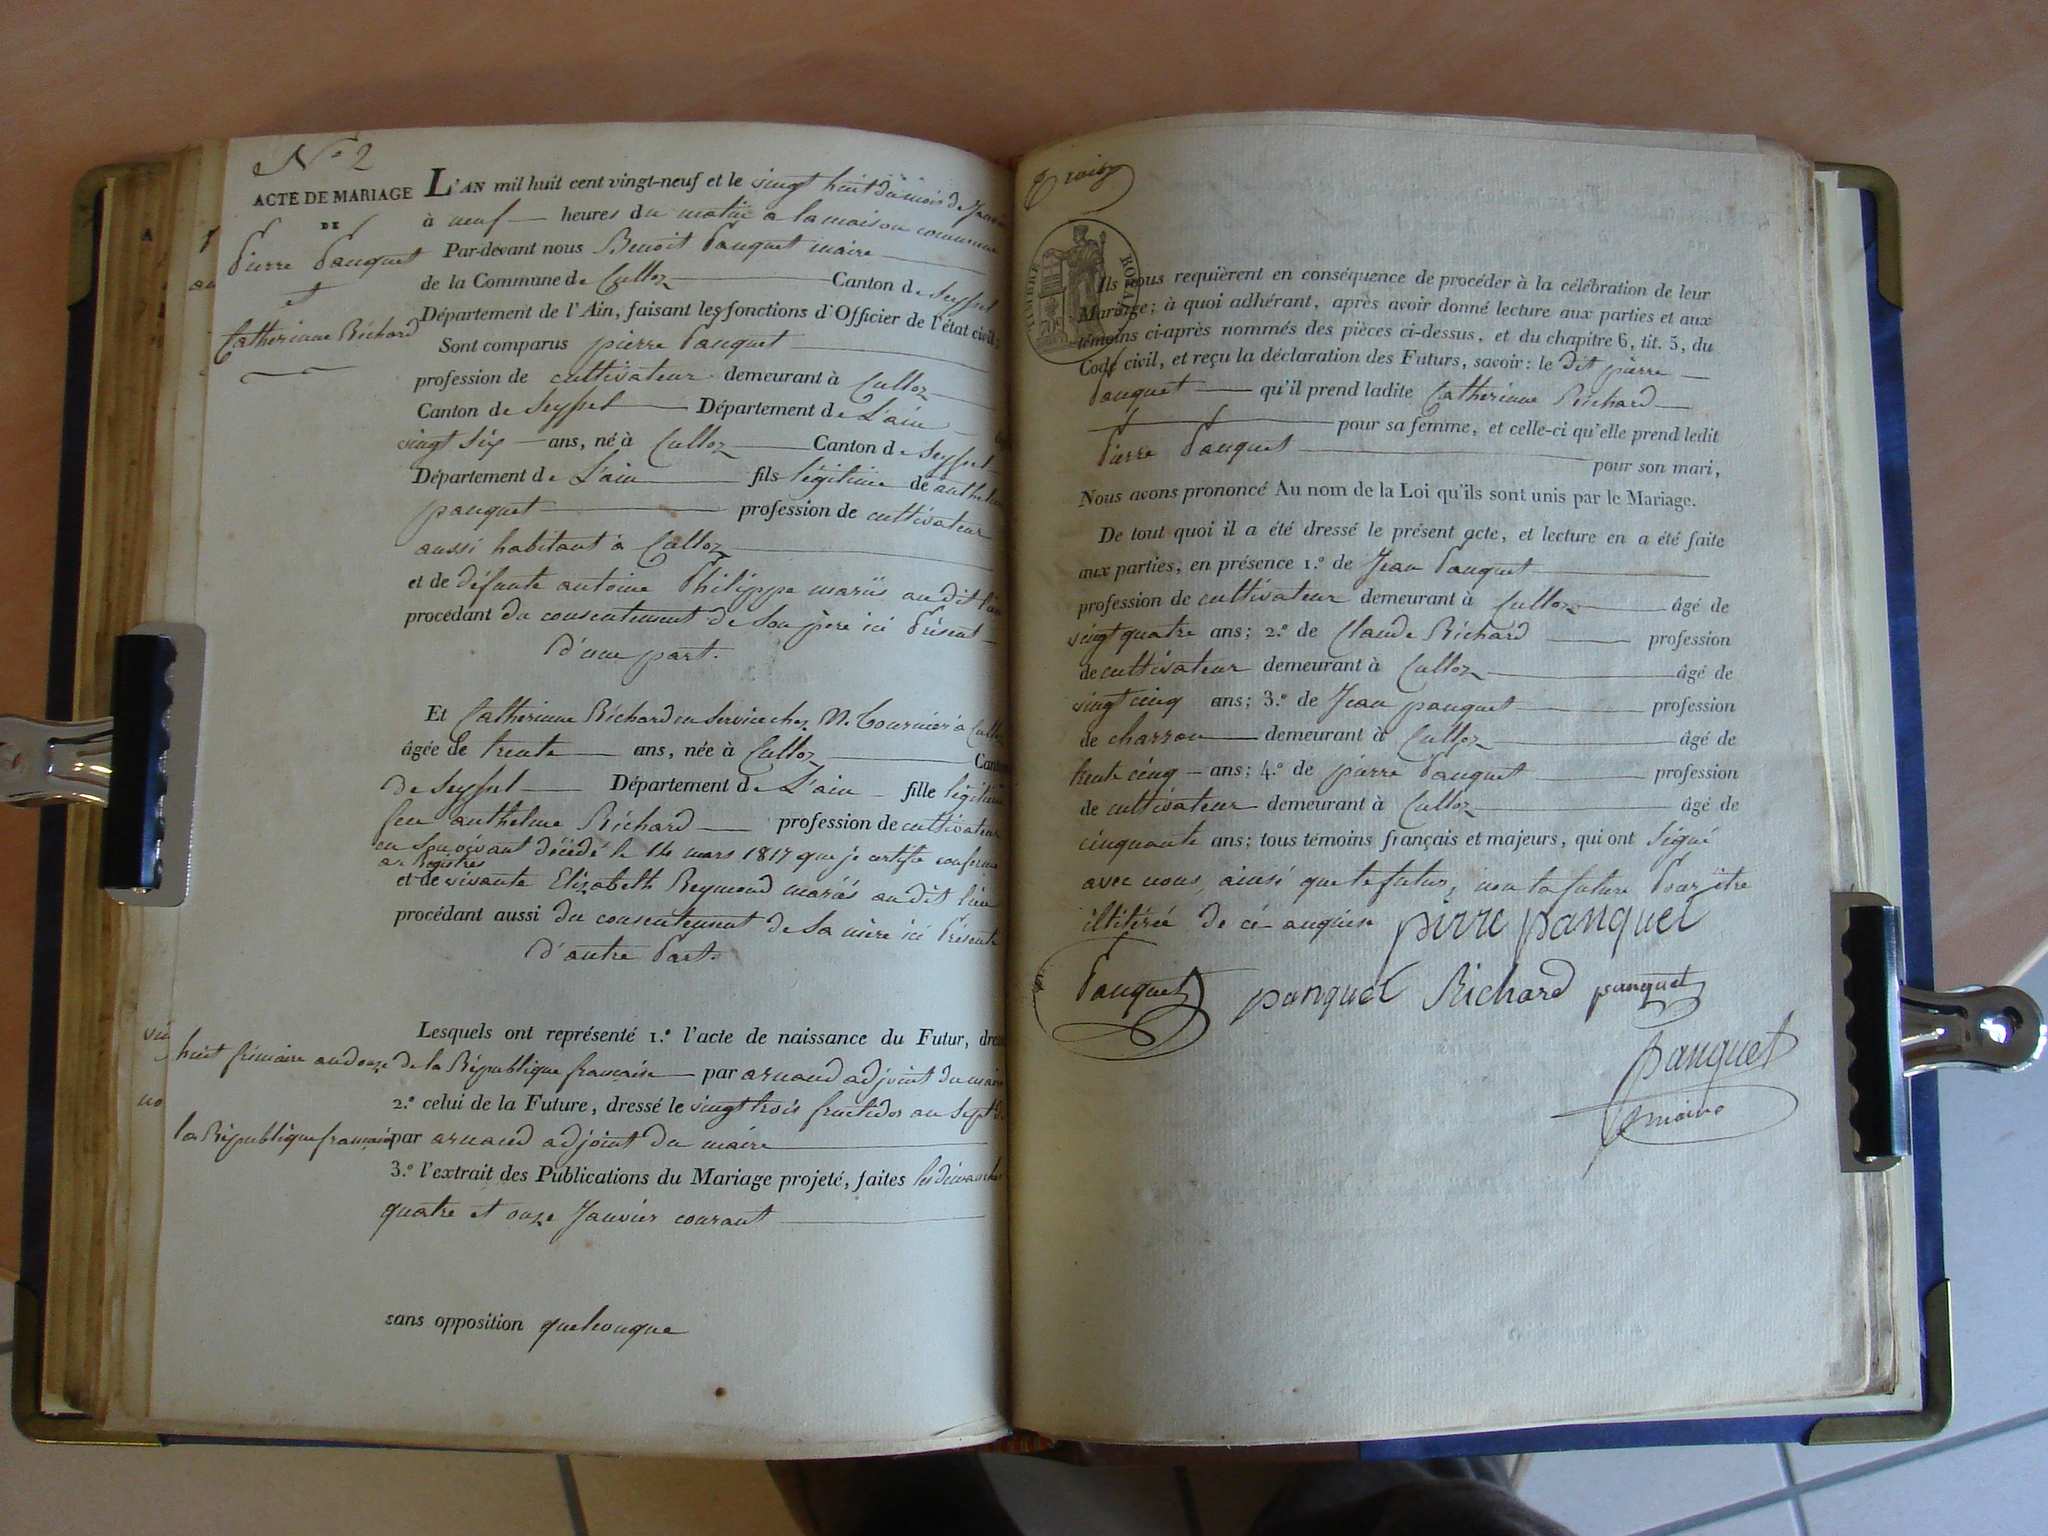 N° 2
ACTE DE MARIAGE
DE
Pierre Pauquet
et
Catherinne Richard
L'AN mil huit cent vingt-neuf et le vingt huit du mois de
à neuf heures du matin a la maison commune
Par-devant nous Benoit Pauquet maire
de la Commune de Culloz Canton de Seyssel
Département de l'Ain, faisant les fonctions d'Officier de l'état civil:
Sont comparus pierre Pauquet
profession de cultivateur demeurant à Culloz
Canton de Seyssel Département de L'ain
vingt six ans, né à Culloz Canton de Seyssel
Département de L'ain fils légitime de anthelme
pauquet profession de cultivateur
aussi habitant a Culloz
et de défunte antoine Philippe mariés au dit lieu
procédant du consentement de son père ici Présent
D'une part.
Et Catherinne Richard en service chez M. Tournier à Culloz
âgée de trente ans, née à Culloz Canton
de Seyssel Département de L'ain fille légitime
feu anthelme Richard profession de cultivateur
en son vivant décédé le 14 mars 1817 que je certifie conforme
au Registres
et de vivante Elizabeth Reymond mariés au dit lieu
procédant aussi du consentement de Sa mère ici Présente
D'autre Part.
Lesquels ont représenté 1.° l'acte de naissance du Futur, dressé
huit frimaire an douze de la République francaise par arnaud adjoint du maire
2.° celui de la Future, dressé le vingt trois fructidor an Sept de
la République francaise par arnaud adjoint du maire
3.° l'extrait des Publications du Mariage projeté, faites les dimanches
quatre et onze Janvier courant
sans opposition quelconque
TIMBRE ROYAL
Ils nous requièrent en conséquence de procéder à la célébration de leur
Mariage; à quoi adhérant, après avoir donné lecture aux parties et aux
témoins ci-après nommés des pièces ci-dessus, et du chapitre 6, tit. 5, du
Code civil, et reçu la déclaration des Futurs, savoir: le dit pierre
Pauquet qu'il prend ladite Catherinne Richard
pour sa femme, et celle-ci qu'elle prend ledit
Pierre Pauquet pour son mari,
Nous avons prononcé Au nom de la Loi qu'ils sont unis par le Mariage.
De tout quoi il a été dressé le présent acte, et lecture en a été faite
aux parties, en présence 1.° de Jean Pauquet
profession de cultivateur demeurant à Culloz âgé de
vingt quatre ans; 2.° de Claude Richard profession
de cultivateur demeurant à Culloz âgé de
vingt cinq ans; 3.° de Jean pauquet profession
de charron demeurant à Culloz âgé de
trente cinq ans; 4.° de pierre Pauquet profession
de cultivateur demeurant à Culloz âgé de
cinquante ans; tous témoins français et majeurs, qui ont Signé
avec nous, ainsi que le futur, non la future Pour être
illitérée de ce enquise pirre panquet
Pauquet panquet Richard pauquet
pauquet
maire